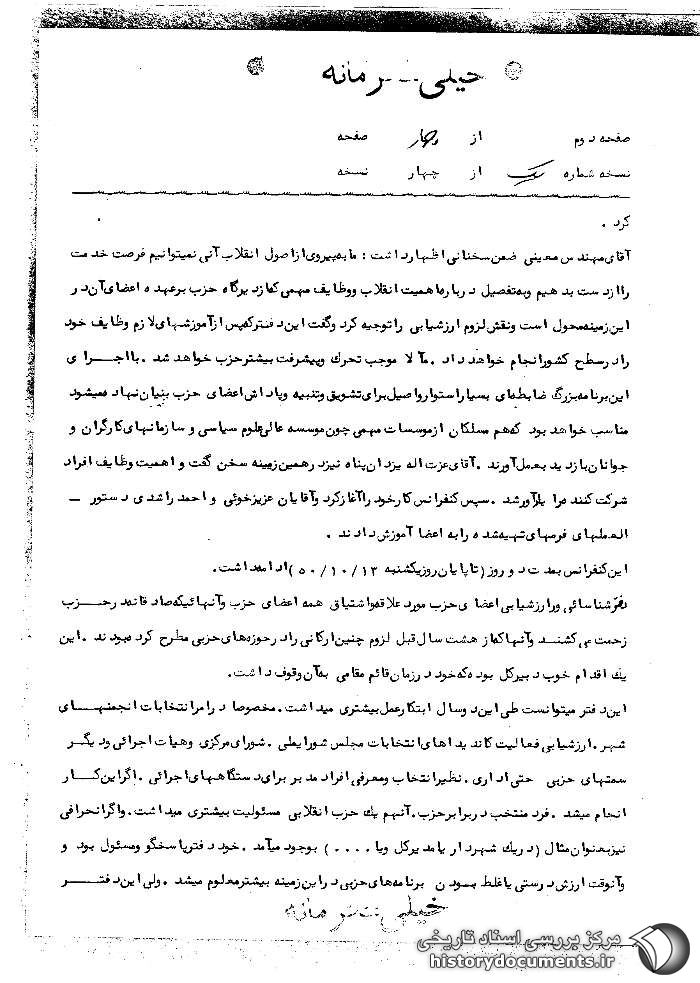 خیلی محرمانه
صفحه دوم از چهار صفحه
نسخه شماره یک از چهار نسخه
کرد .
آقای مهندس معینی ضمن سخنانی اظهار داشت : ما به پیروی از اصول انقلاب آنی نمیتوانیم فرصت خدمت
را از دست بدهیم و به تفصیل درباره اهمیت انقلاب و وظایف مهمی که از دیرگاه حزب برعهده اعضای آن در
این زمینه محول است و نقش لزوم ارزشیابی را توجیه کرد و گفت این دفتر که پس از آموزشهای لازم وظایف خود
را در سطح کشور انجام خواهد داد . مآلا موجب تحرک و پیشرفت بیشتر حزب خواهد شد . با اجرای
این برنامه بزرگ ضابطه‌ای بسیار استوار و اصیل برای تشویق و تنبیه و پاداش اعضای حزب بنیان نهاده میشود
مناسب خواهد بود که هم مسلکان از موسسات مهمی چون موسسه عالی علوم سیاسی و سازمانهای کارگران و
جوانان بازدید بعمل آورند . آقای عزت اله یزدان پناه نیز در همین زمینه سخن گفت و اهمیت وظایف افراد
شرکت کننده را یادآور شد . سپس کنفرانس کار خود را آغاز کرد و آقایان عزیز خوئی و احمد راشدی دستور –
العملهای فرمهای تهیه شده را به اعضا آموزش دادند .
این کنفرانس بمدت دو روز ( تا پایان روز یکشنبه ۵۰/۱۰/۱۳ ) ادامه داشت .
شناسائی و ارزشیابی اعضای حزب مورد علاقه و اشتیاق همه اعضای حزب و آنهائیکه صادقانه در حزب
زحمت می کشند و آنها که از هشت سال قبل لزوم چنین ارکانی را در حوزه های حزبی مطرح کرده بودند . این
یک اقدام خوب دبیرکل بوده که خود در زمان قائم مقامی به آن وقوف داشت .
این دفتر میتوانست طی این دو سال ابتکار عمل بیشتری میداشت . مخصوصا در امر انتخابات انجمنهای
شهر . ارزشیابی فعالیت کاندیداهای انتخابات مجلس شورایملی . شورای مرکزی و هیات اجرائی و دیگر
سمتهای حزبی حتی اداری . نظیر انتخاب و معرفی افراد مدبر برای دستگاههای اجرائی . اگر این کار
انجام میشد . فرد منتخب در برابر حزب . آنهم یک حزب انقلابی مسئولیت بیشتری میداشت . و اگر انحرافی
نیز بعنوان مثال ( در یک شهردار یا مدیرکل و یا .... ) بوجود میآمد . خود دفتر پاسخگو و مسئول بود و
و آنوقت ارزش درستی یا غلط بودن برنامه های حزبی در این زمینه بیشتر معلوم میشد . ولی این دفتر
خیلی محرمانه
مرکز بررسی اسناد تاریخی
historydocuments.ir